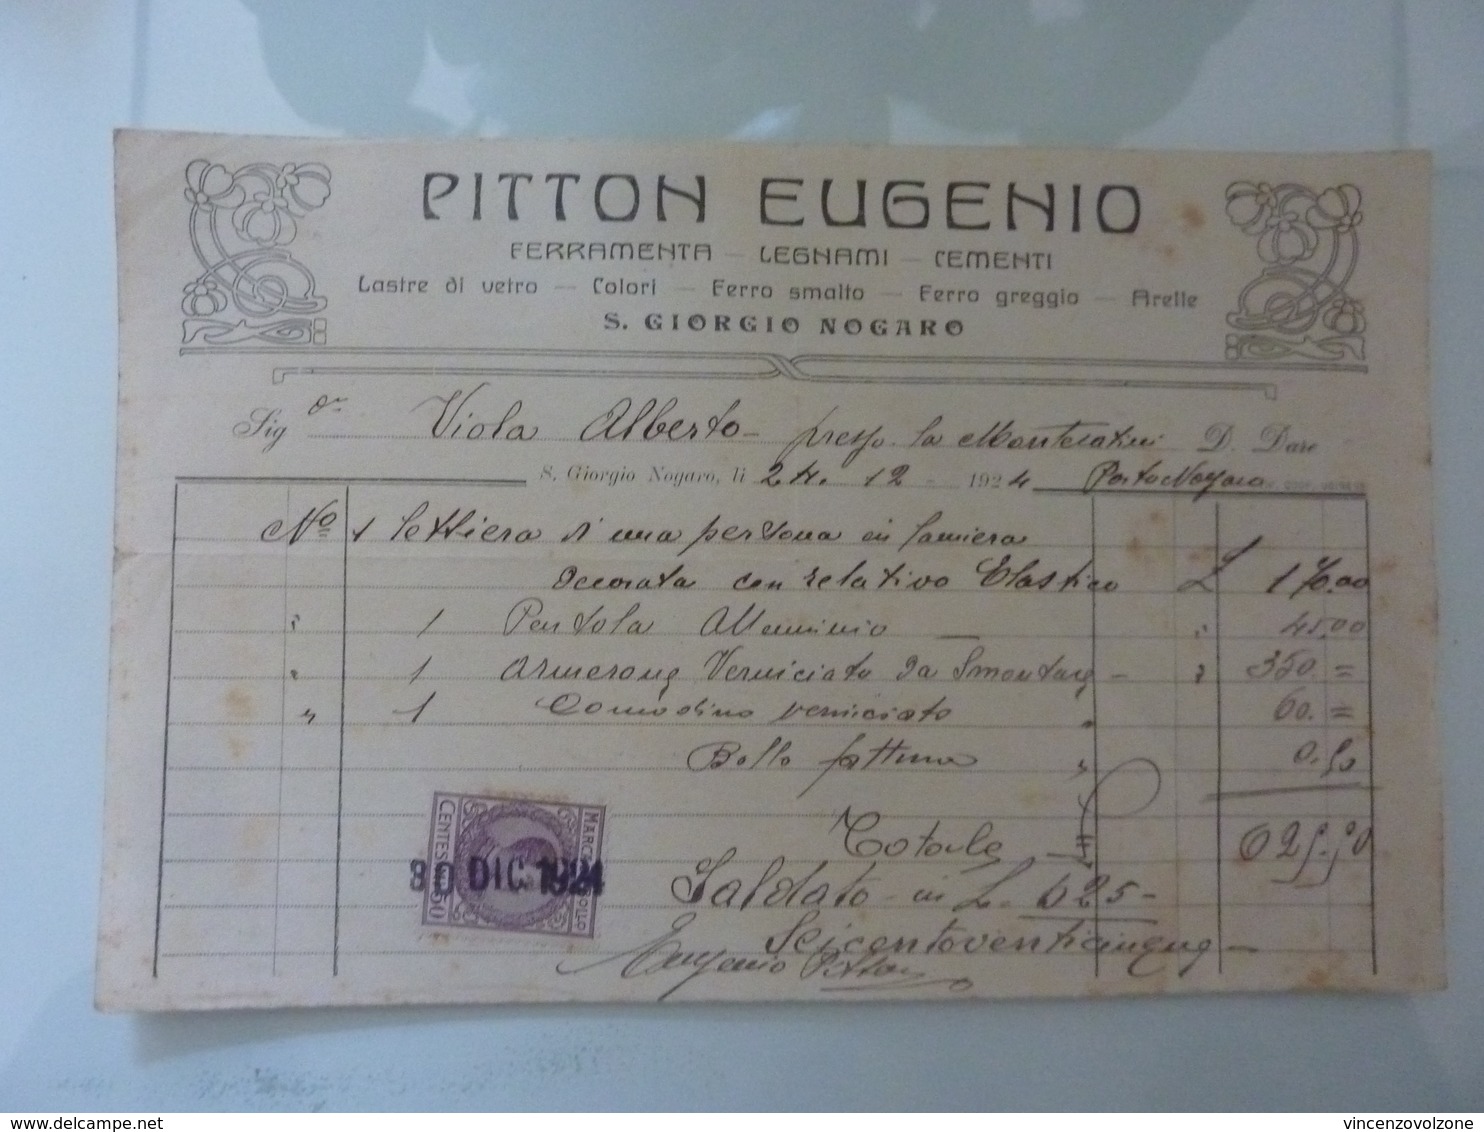 PITTON EUGENIO
FERRAMENTA — LEGNAMI — CEMENTI
Lastre di vetro — Colori — Ferro smalto — Ferro greggio — Arelle
S. GIORGIO NOGARO
Sig or Viola Alberto - presso la Montecatini D. Dare
S. Giorgio Nogaro, li 24. 12 - 1924 Porto Nogaro
No 1 lettiera d'una persona in lamiera
Decorata con relativo Elastico £ 170.00
" 1 Pentola Alluminio — " 45.00
" 1 Armerone Verniciato Da Smontare - " 350. =
" 1 Comodino verniciato " 60. =
Bollo fattura " 0.50
Totale £ 625.50
Saldato - in L. 625 -
Seicentoventicinque -
Eugenio Pitton
MARCA BOLLO
CENTES. 50
30 DIC. 1924
vincenzovolzone
delcampe.net